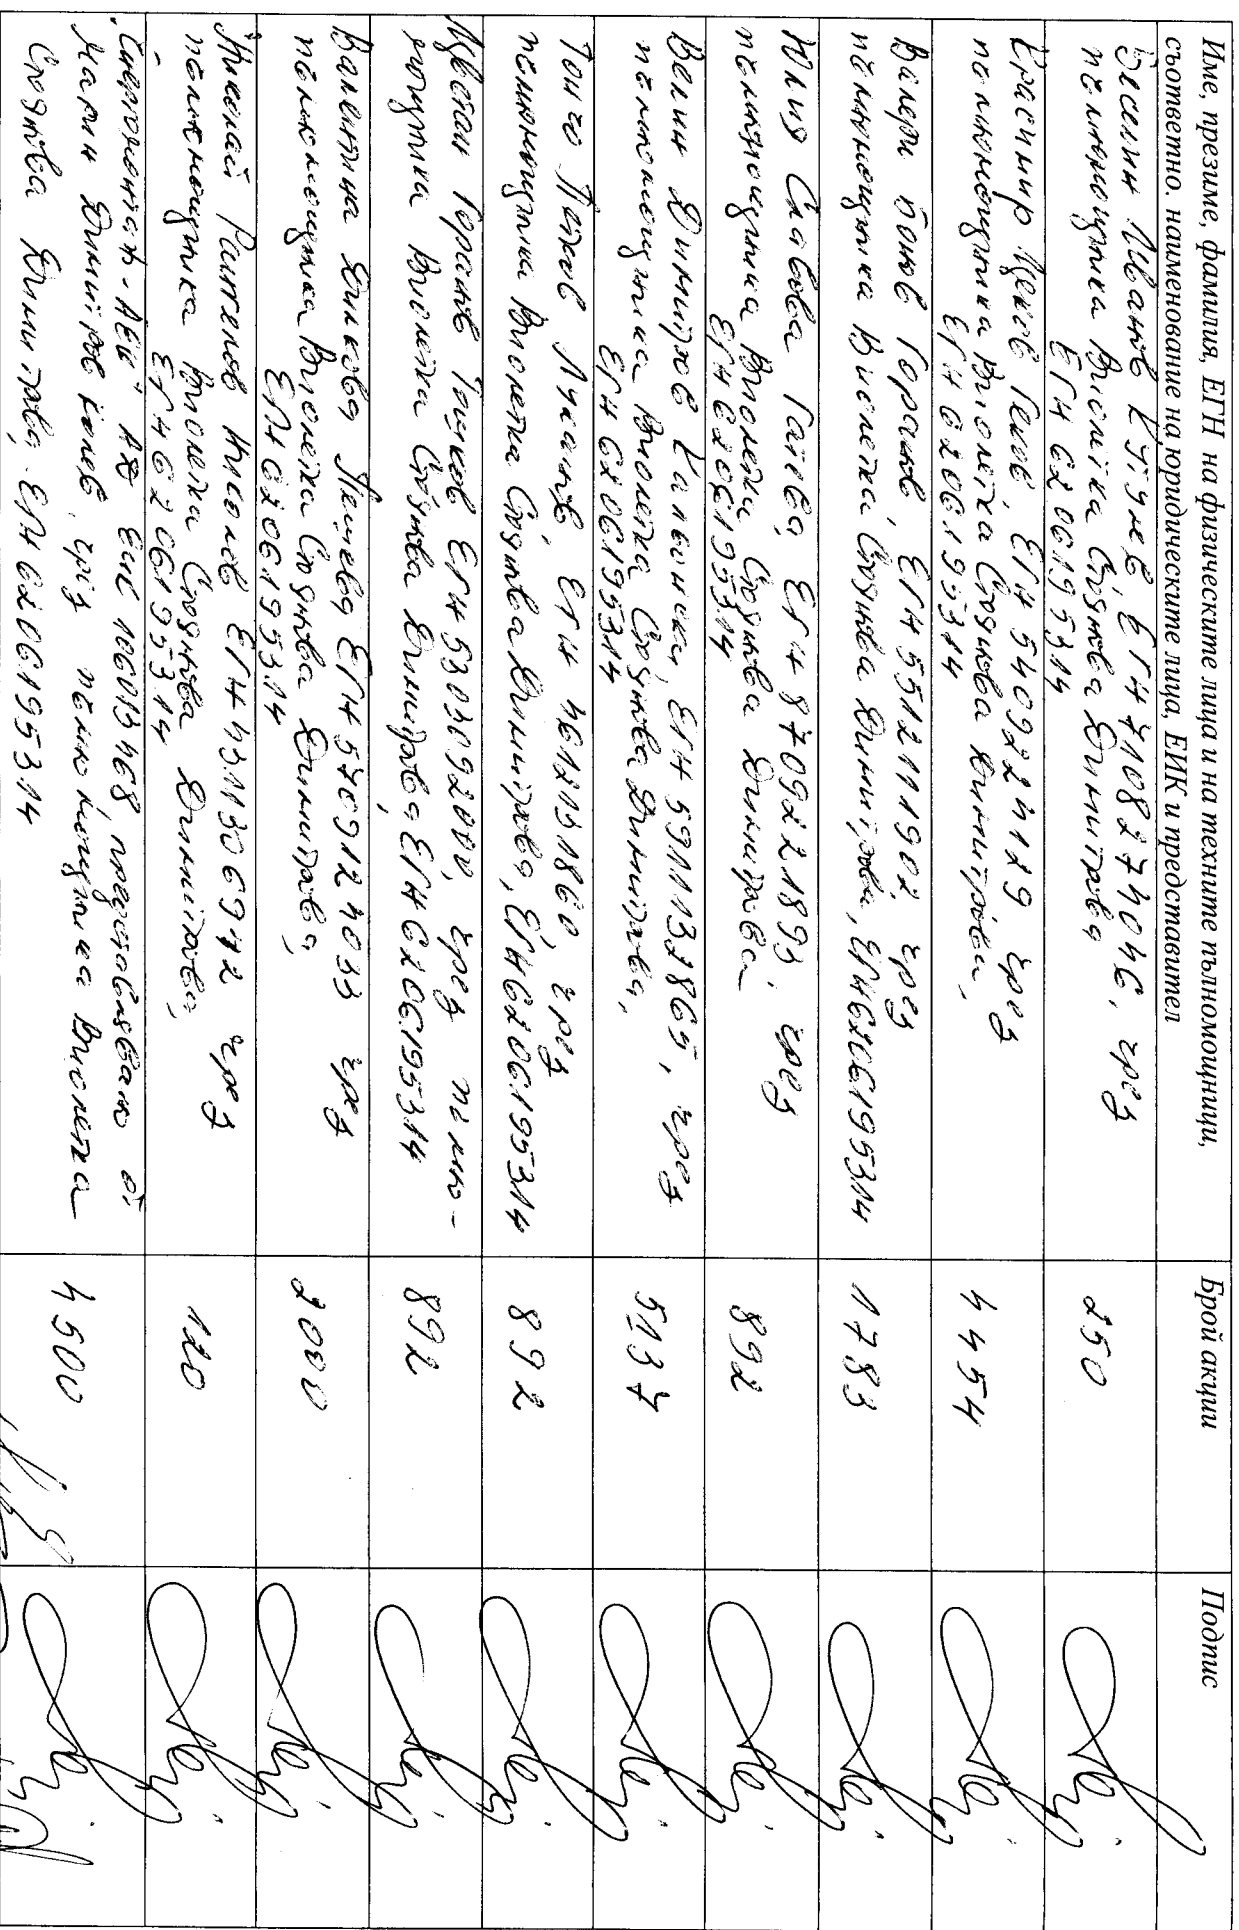 Име, презиме, фамилия, ЕГН на физическите лица и на техните пълномощници, съответно, наименование на юридическите лица, ЕИК и представител
Брой акции
Подпис
Веселин Иванов ЕГН 7108274046, чрез
пълномощника Виолетка Стоянова Димитрова
ЕГН 6206195314
250
Красимир Цеков Геков, ЕГН 5409224129 чрез
пълномощника Виолетка Стоянова Димитрова,
ЕГН 6206195314
4454
Валери Бонов Горанов, ЕГН 5512111902, чрез
пълномощника Виолетка Стоянова Димитрова, ЕГН 6206195314
1783
Юлия Славова Гатева, ЕГН 8709221893, чрез
пълномощника Виолетка Стоянова Димитрова
ЕГН 6206195314
892
Велин Димитров ЕГН 5911132865, чрез
пълномощника Виолетка Стоянова Димитрова,
ЕГН 6206195314
5137
Тончо Панков Луканов, ЕГН 4612131860, чрез
пълномощника Виолетка Стоянова Димитрова, ЕГН 6206195314
892
Цветан Горанов Ташков ЕГН 5303092000, чрез пълно-
мощника Виолетка Стоянова Димитрова, ЕГН 6206195314
892
Валентина Динкова Пешева, ЕГН 5709124033 чрез
пълномощника Виолетка Стоянова Димитрова,
ЕГН 6206195314
2000
Николай Рангелов Николов ЕГН 4311306942 чрез
пълномощника Виолетка Стоянова Димитрова,
ЕГН 6206195314
120
АД ЕИК 106013468 представлявано от
Марин Димитров Колев, чрез пълномощника Виолетка
Стоянова Димитрова, ЕГН 6206195314
4500